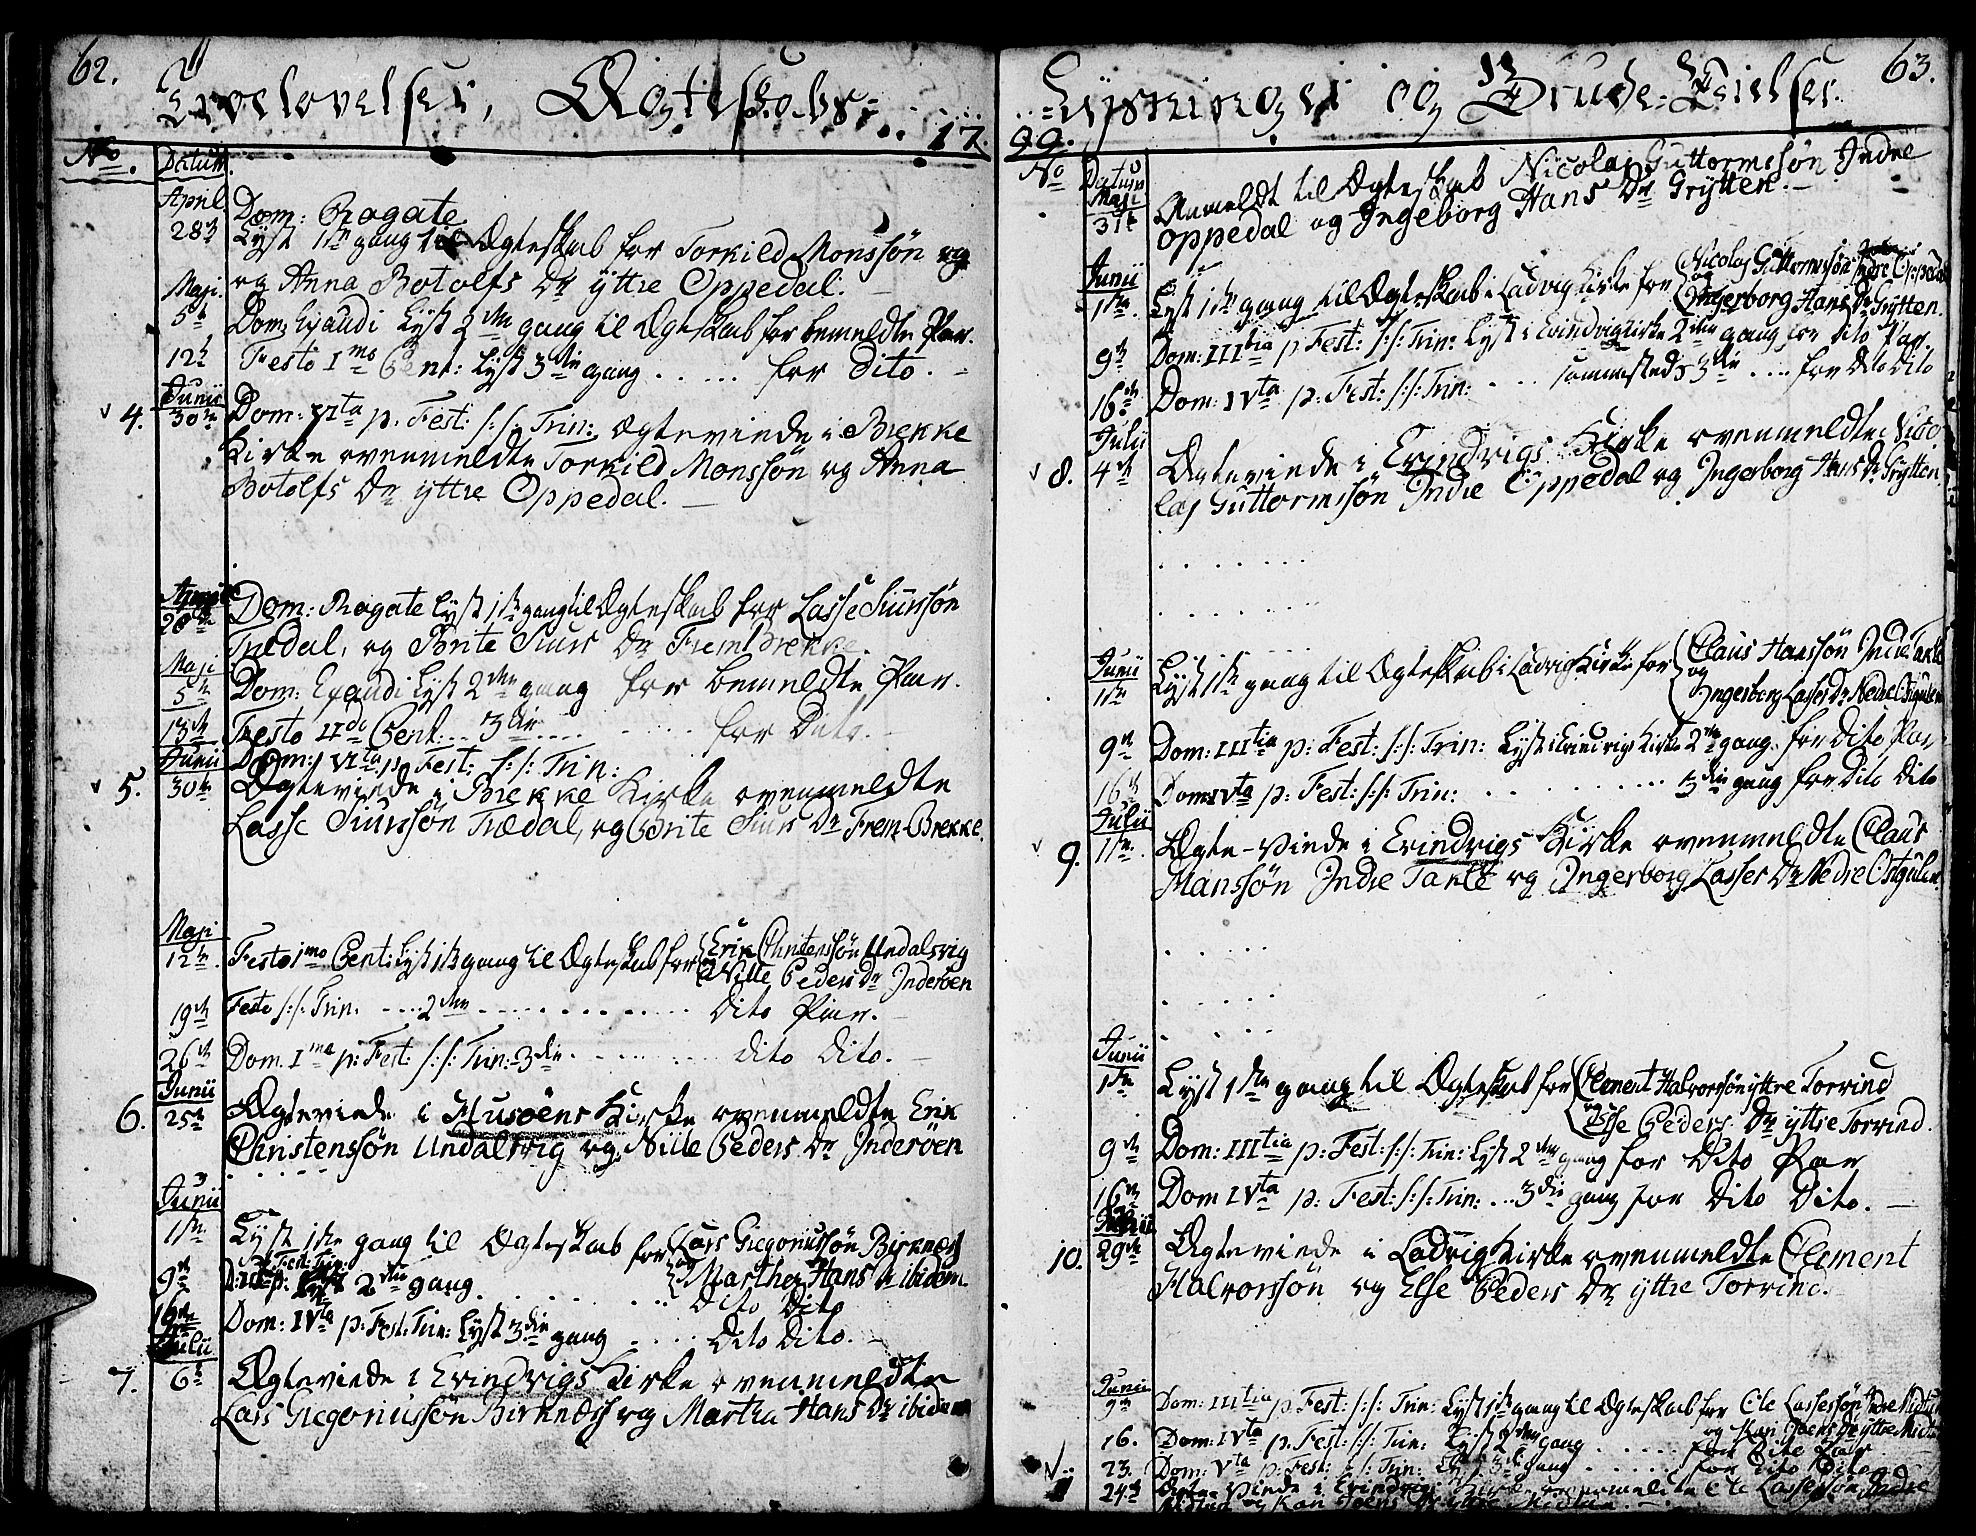 62.
Trolovelser, Ægteskabs=
17.
No. Datum.
April 28de Dom: Rogate
Lyst 1ste gang til Ægteskab for Torkild Monssøn og
og Anna Botolfs Dr yttre Oppedal.
Maji 5te Dom: Exaudi Lyst 2den gang til Ægteskab for bemeldte Par.
12te Festo 1mo Pent: Lyst 3die gang ..... for Dito.
4. Junii 30te Dom: VIta p. Fest: S:S: Trin: Ægteviede i Brekke
Kirke ovenmeldte Torkild Monssøn og Anna
Botolfs Dr yttre Oppedal.
April 28de Dom: Rogate Lyst 1ste gang til Ægteskab for Lasse Siurssøn
Trædal, og Brite Siurs Dr Frem Brekke.
Maji 5te Dom: Exaudi Lyst 2den gang for bemeldte Par.
13de Festo IIdo Pent: ... 3die .... for Dito.
Junii Dom: VIta p. Fest: S:S: Trin:
5. 30te Ægteviede i Brekke Kirke ovenmeldte
Lasse Siurssøn Trædal, og Brite Siurs Dr Frem-Brekke.
Maji 12te Festo 1mo Pent: Lyst 1ste gang til Ægteskab for Erik Christenssøn Undalsvig
og Nille Peders Dr Inderöen
19de Festo S:S: Trin: .... 2den ............ Dito Par.
26de Dom. Ima p: Fest: S:S: Trin: 3die ....... dito Dito.
Junii
6. 25de Ægteviede i Husöens Kirke ovenmeldte Erik
Christenssøn Undalsvig og Nille Peders Dr Inderöen
Junii
1ste Lyst 1ste gang til Ægteskab for Lars Gregoriussøn Birknæs
og Marthe Hans Dr ibidem
p: Fest: Trin:
9de 2den gang ........ Dito Dito
16de Dom: IVta p: Fest: Trin: Lyst 3die gang .... Dito Dito.
Julii
7. 6te Ægteviede i Evindvigs Kirke ovenmeldte
Lars Gregoriussøn Birknæs og Martha Hans Dr ibidem
63.
=Lysninger og Brude-Vielser.
99.
No Datum
Maji 31te Anmeldt til Ægteskab Nicolaj Guttormssøn Indre
Oppedal og Ingeborg Hans Dr Grytten.
Junii 1ste Lyst 1ste gang til Ægteskab i Ladvig Kirke for Nicolaj Guttormssøn Indre Oppedal
og Ingerborg Hans Dr Grytten.
9de Dom: IIItia p Fest: S:S: Trin: Lyst i Evindvig Kirke 2den gang for dito Par.
16de Dom: IVta p: Fest: S:S: Trin: .... sammesteds 3die .... for Dito Dito
Julii
8. 4de Ægteviede i Evindvigs Kirke ovenmeldte Nico
laj Guttormssøn Indre Oppedal og Ingerborg Hans Dr Grytten
Junii 1ste Lyst 1ste gang til Ægteskab i Ladvig Kirke for Claus Hanssøn Indre Takle
og Ingerborg Lasses Dr Nedre Østgulen
9de Dom: IIItia p: Fest: S:S: Trin: Lyst i Evindvigs Kirke 2den gang for dito Par
16de Dom: IVta p: Fest: S:S: Trin: ......... 3die gang for Dito Dito
Julii
9. 11te Ægte-viede i Evindvigs Kirke ovenmeldte Claus
Hanssøn Indre Takle og Ingerborg Lasses Dr Nedre Østgulen
Junii
1ste Lyst 1ste gang til Ægteskab for Clement Halvorssøn yttre Torvind
og Else Peders Dr yttre Torvind.
9de Dom: IIItia p: Fest: S:S: Trin: Lyst 2den gang for Dito Par
16de Dom IVta p: Fest: S:S: Trin: ... 3die gang for Dito Dito.
10. 29de Ægteviede i Ladvig Kirke ovenmeldte Clement
Halvorssøn og Else Peders Dr yttre Torvind.
Junii
9de Dom: IIItia p Fest: S:S: Trin: Lyst 1ste gang til Ægteskab for Ole Lassessøn Indre
og Kari Joens Dr yttre
16. Dom: IVta p. Fest: S:S: Trin: Lyst 2den gang ..... for Dito Par
23. Dom: Vta p: Fest: S:S: Trin: Lyst 3die gang ..... for Dito Dito
24de Ægte-Viede i Evindvigs Kirke ovenmeldte Ole Lassessøn Indre
og Kari Joens Dr yttre